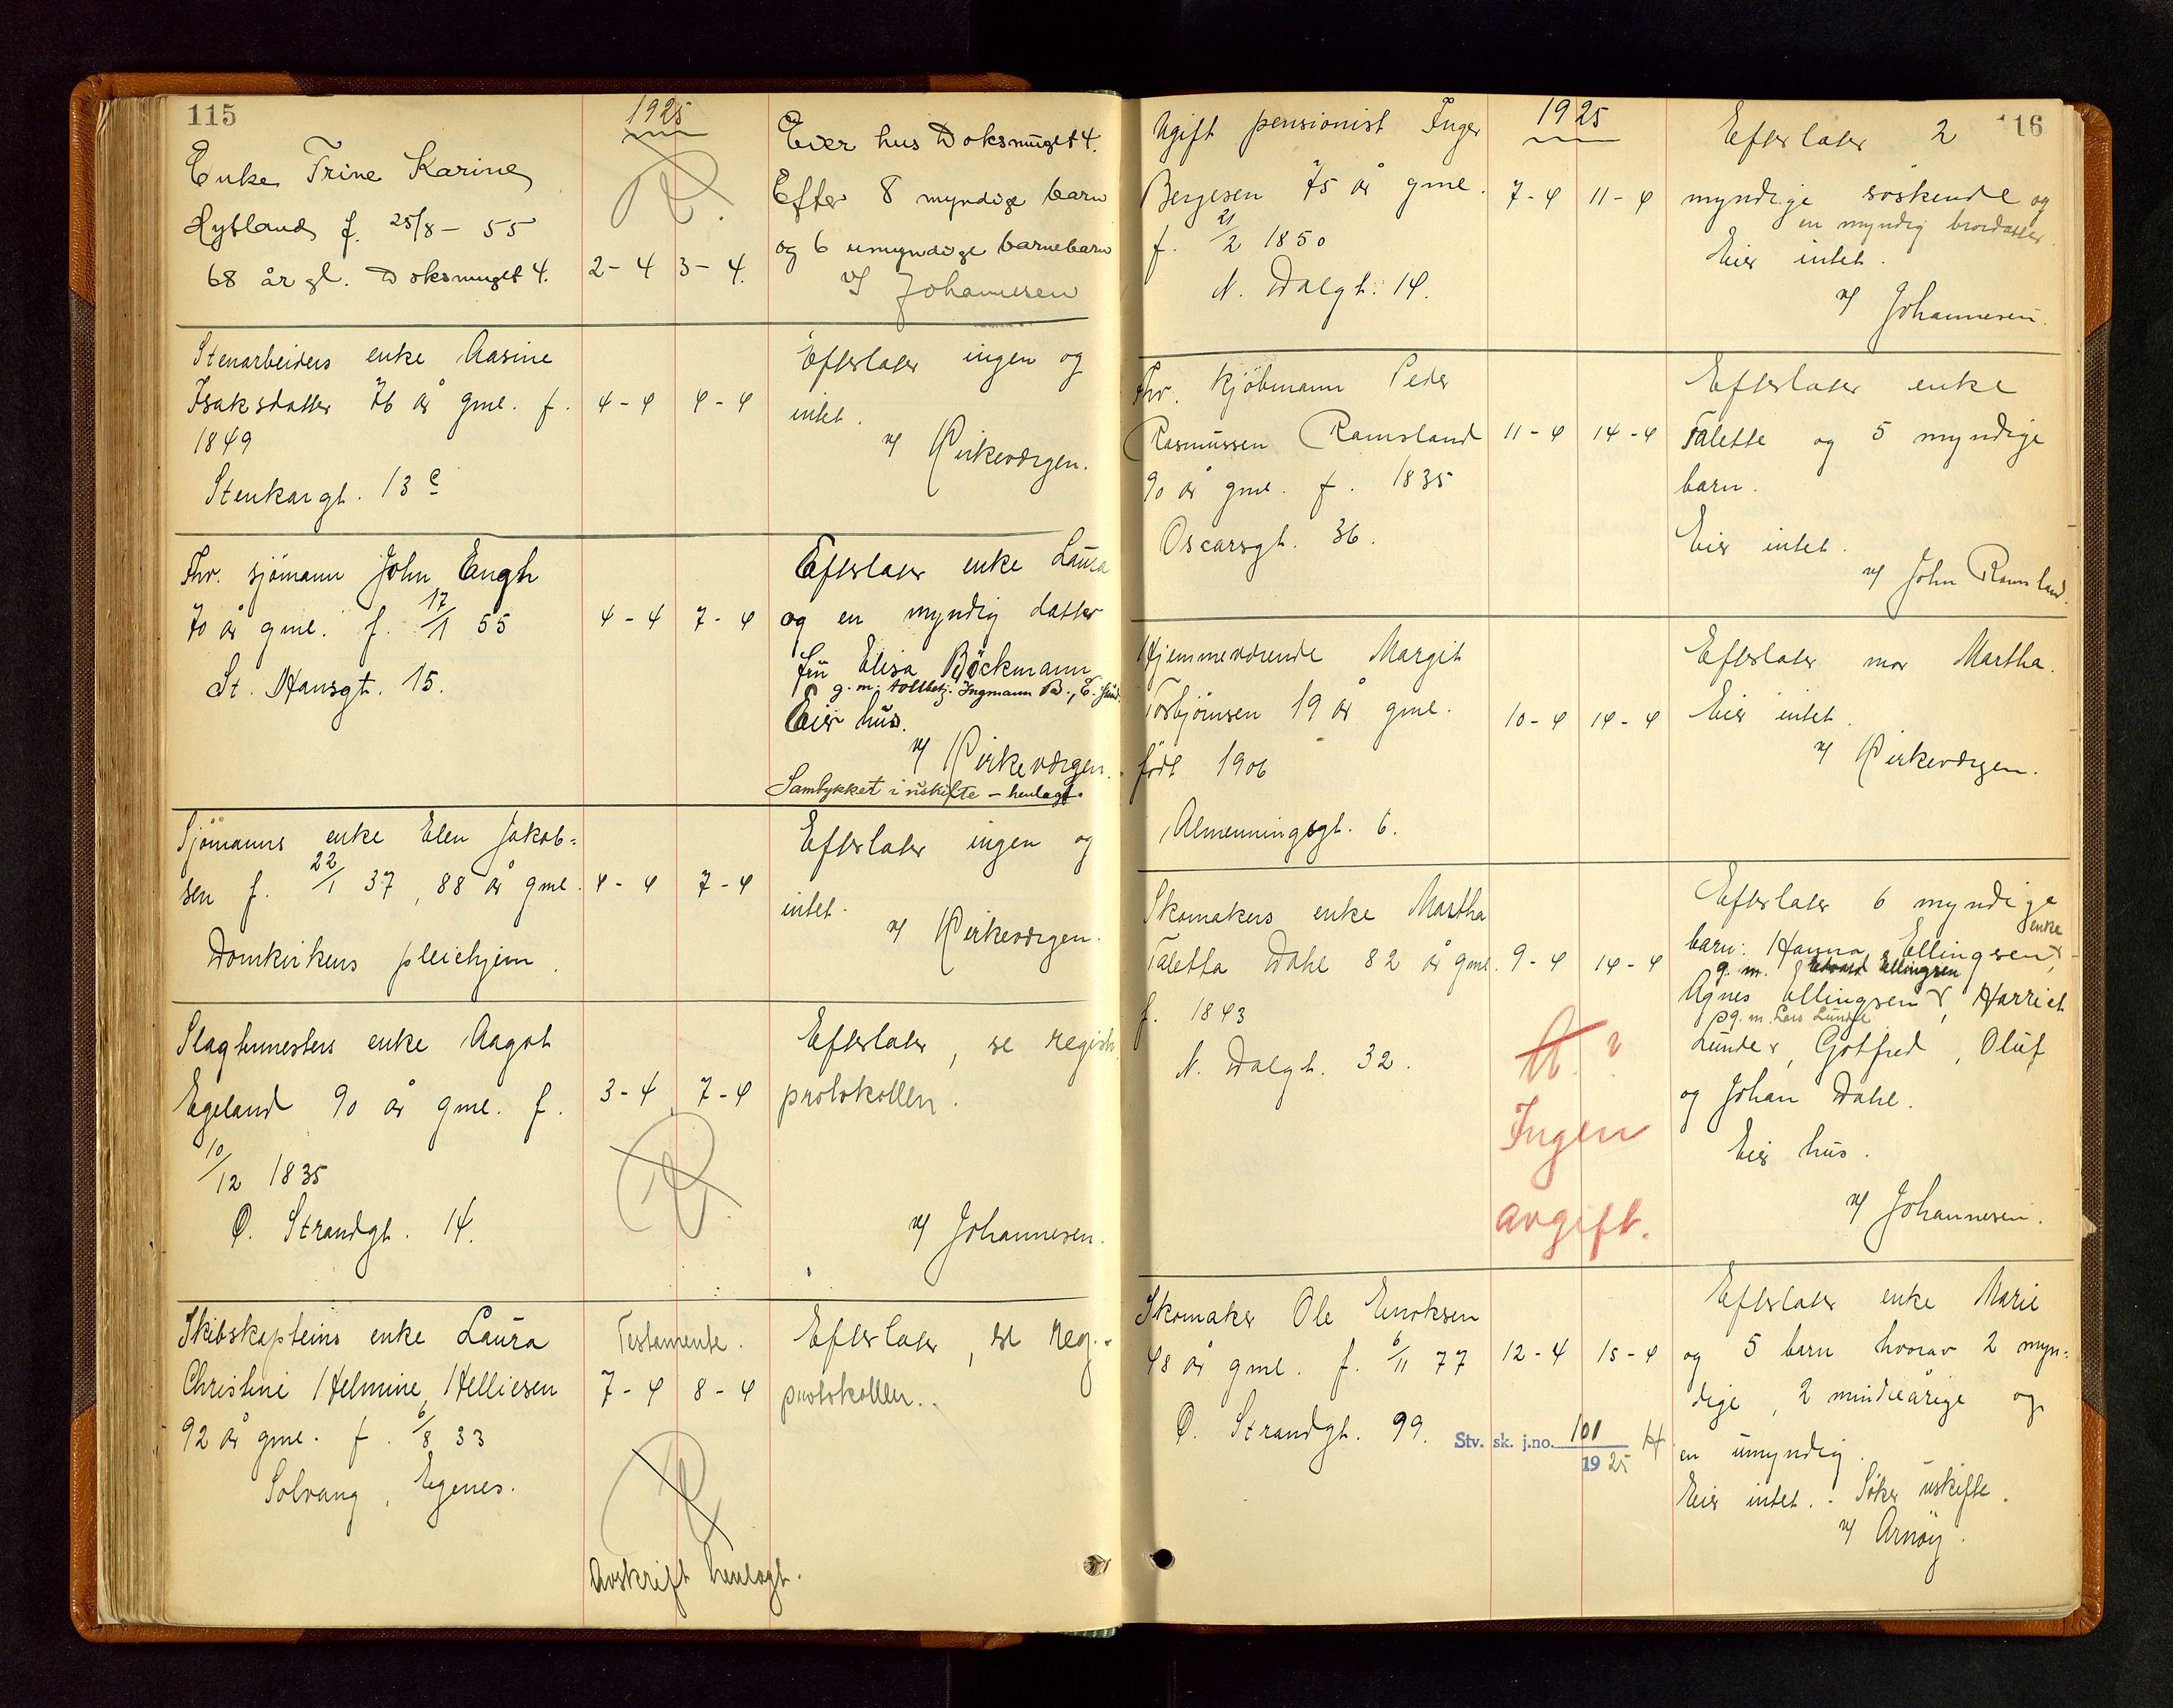 115
1925
Enke Trine Karine
Hytland f. 25/8 - 55
68 år gl. Doksmuget 4.
2 - 4 3 - 4.
Eier hus Doksmuget 4.
Efter 8 myndige barn
og 6 umyndige barnebarn
v/ Johannesen
Stenarbeiders enke Aasine
Isaksdatter 76 år gml. f.
1849
Stenkargt. 13 c
4 - 4 4 - 4
Efterlater ingen og
intet.
v/ Kirkevergen.
Fhv. sjömann John Engh
70 år gml. f. 17/1 55
St. Hansgt. 15.
4 - 4 7 - 4
Efterlater enke Laura
og en myndig datter
fru Elisa Böckmann
g. m. tollbetj. Ingmann B.,
Eier hus.
v/ Kirkevergen.
Samtykket i uskifte - henlagt.
Sjömanns enke Elen Jakob=
sen f. 22/1 37, 88 år gml.
Domkirkens pleiehjem.
4 - 4 7 - 4
Efterlater ingen og
intet.
v/ Kirkevergen.
Slagtermesters enke Aagot
Egeland 90 år gml. f.
10/12 1835
Ø. Strandgt. 14.
3 - 4 7 - 4
Efterlater, se regist.
protokollen.
v/ Johannesen.
Skibskapteins enke Laura
Christine Helmine Helliesen
92 år gml. f. 6/8 33
Solvang, Egenes.
Testamente.
7 - 4 8 - 4
Avskrift henlagt.
Efterlater, se reg.-
protokollen.
116
1925
Ugift pensionist Inger
Bergesen 75 år gml.
f. 21/2 1850
N. Dalgt. 14.
7 - 4 11 - 4
Efterlater 2
myndige söskende og
en myndig brordatter.
Eier intet.
v/ Johannesen.
Fhv. kjöbmann Peder
Rasmussen Ramsland
90 år gml. f. 1835
Oscarsgt. 36.
11 - 4 14 - 4
Efterlater enke
Talette og 5 myndige
barn.
Eier intet.
v/ John Ramsland.
Hjemmeværende Margit
Torbjörnsen 19 år gml.
födt 1906
Almenningsgt. 6.
10 - 4 14 - 4
Efterlater mor Martha.
Eier intet.
v/ Kirkevergen.
Skomakers enke Martha
Taletta Dahl 82 år gml.
f. 1843
N. Dalgt. 32.
9 - 4 14 - 4
A. ?
Ingen
avgift.
Efterlater 6 myndige
enke
barn: Hanna Ellingsen,
g. m. Edvard Ellingsen
Agnes Ellingsen, Harriet
g. m. Lars Lunde
Lunde, Gotfred, Oluf
og Johan Dahl.
Eier hus.
v/ Johannesen.
Skomaker Ole Enoksen
48 år gml. f. 6/11 77
Ø. Strandgt. 99.
12 - 4 15 - 4
Stv. sk. j.no. 101 H
1925
Efterlater enke Marie
og 5 barn hvorav 2 myn=
dige, 2 mindreårige og
en umyndig.
Eier intet. - Söker uskifte.
v/ Arnöy.